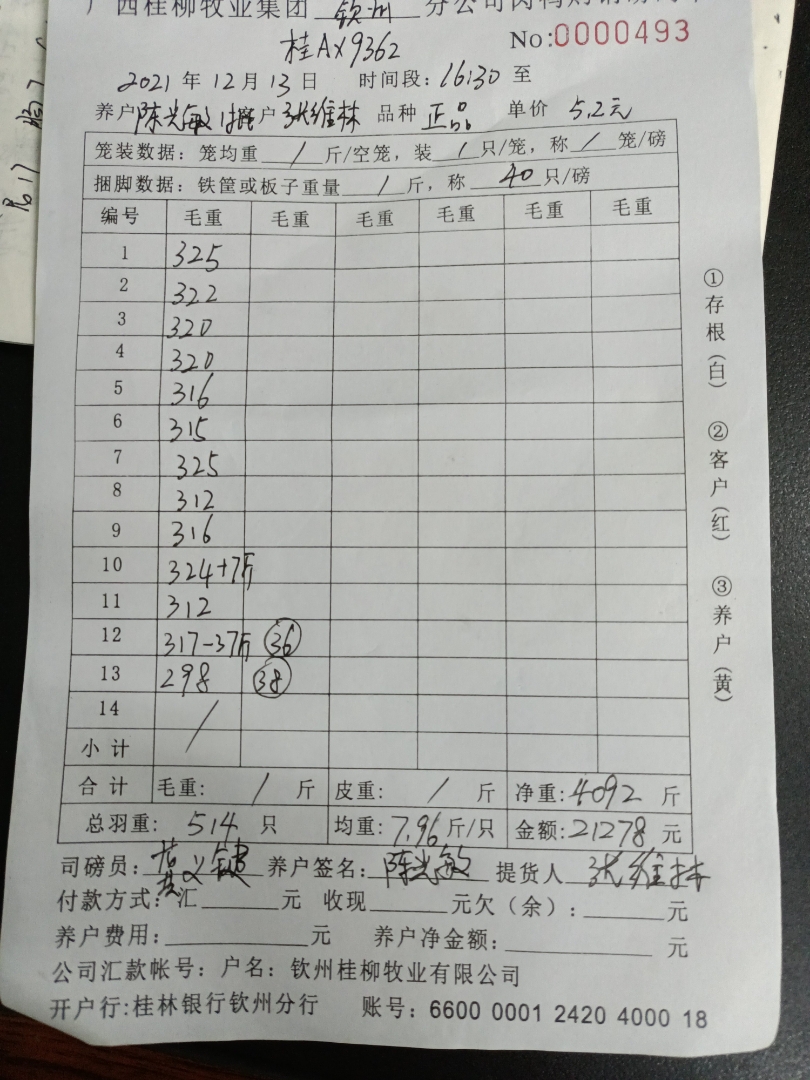 广西桂柳牧业集团 钦州 分公司肉鸭购销
桂AX9362
No:0000493
2021 年 12 月 13 日 时间段: 16:30 至
养户 陈光敏 客户 张维林 品种 正品 单价 5.2元
笼装数据: 笼均重 / 斤/空笼, 装 / 只/笼, 称 / 笼/磅
捆脚数据: 铁筐或板子重量 / 斤, 称 40 只/磅
编号 毛重 毛重 毛重 毛重 毛重 毛重
1 325
2 322
3 320
4 320
5 316
6 315
7 325
8 312
9 316
10 324+7斤
11 312
12 317-37斤 36
13 298 38
14 /
小计
合计 毛重: / 斤 皮重: / 斤 净重: 4092 斤
总羽重: 514 只 均重: 7.96 斤/只 金额: 21278 元
司磅员: 黄义键 养户签名: 陈光敏 提货人 张维林
付款方式: 汇 元 收现 元欠(余): 元
养户费用: 元 养户净金额: 元
公司汇款帐号: 户名: 钦州桂柳牧业有限公司
开户行:桂林银行钦州分行 账号: 6600 0001 2420 4000 18
①存根(白) ②客户(红) ③养户(黄)